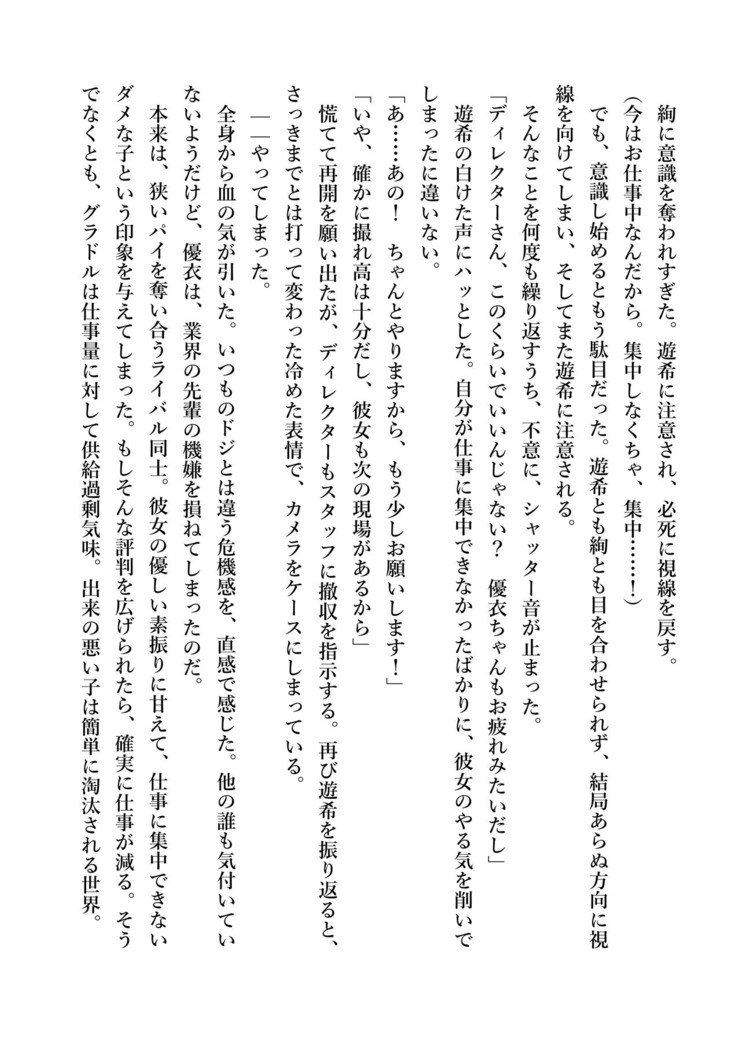 絢に意識を奪われすぎた。遊希に注意され、必死に視線を戻す。
(今はお仕事中なんだから。集中しなくちゃ、集中……！)
でも、意識し始めるともう駄目だった。遊希とも絢とも目を合わせられず、結局あらぬ方向に視
線を向けてしまい、そしてまた遊希に注意される。
そんなことを何度も繰り返すうち、不意に、シャッター音が止まった。
「ディレクターさん、このくらいでいいんじゃない？　優衣ちゃんもお疲れみたいだし」
遊希の白けた声にハッとした。自分が仕事に集中できなかったばかりに、彼女のやる気を削いで
しまったに違いない。
「あ……あの！　ちゃんとやりますから、もう少しお願いします！」
「いや、確かに撮れ高は十分だし、彼女も次の現場があるから」
慌てて再開を願い出たが、ディレクターもスタッフに撤収を指示する。再び遊希を振り返ると、
さっきまでとは打って変わった冷めた表情で、カメラをケースにしまっている。
――やってしまった。
全身から血の気が引いた。いつものドジとは違う危機感を、直感で感じた。他の誰も気付いてい
ないようだけど、優衣は、業界の先輩の機嫌を損ねてしまったのだ。
本来は、狭いパイを奪い合うライバル同士。彼女の優しい素振りに甘えて、仕事に集中できない
ダメな子という印象を与えてしまった。もしそんな評判を広げられたら、確実に仕事が減る。そう
でなくとも、グラドルは仕事量に対して供給過剰気味。出来の悪い子は簡単に淘汰される世界。